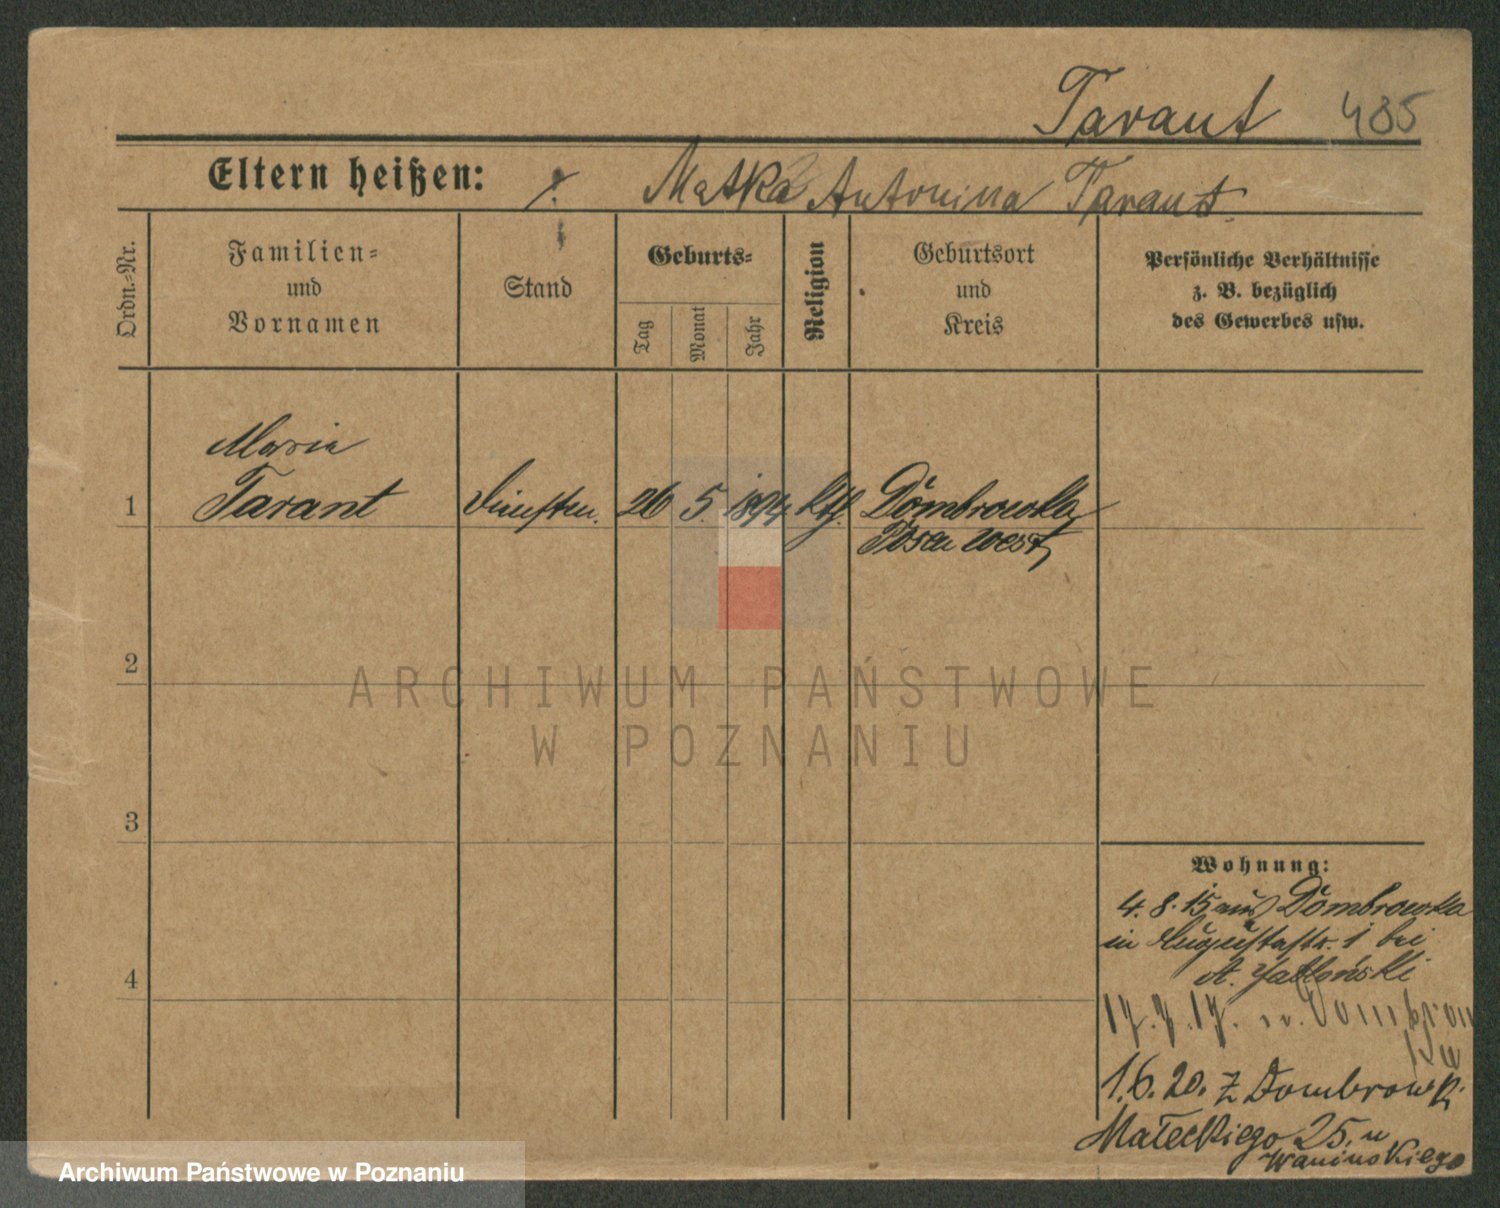 Tarant 485
Eltern heißen: ⁒ Matka Antonina Tarant
Ordn.-Nr.
Familien-
und
Vornamen
Stand
Geburts-
Tag
Monat
Jahr
Religion
Geburtsort
und
Kreis
Persönliche Verhältnisse
z. B. bezüglich
des Gewerbes usw.
Maria
1 Tarant Dienstm. 26 5. 1894 kth. Dombrowka
Posen West
2
ARCHIWUM PAŃSTWOWE
W POZNANIU
3
Wohnung:
4. 8. 15 aus Dombrowka
in Augustastr. 1 bei
A. Jabłoński
4
17. 7. 17. n. Dombrow
ka
1.6.20. z Dombrowki
Małeckiego 25. u
Archiwum Państwowe w Poznaniu